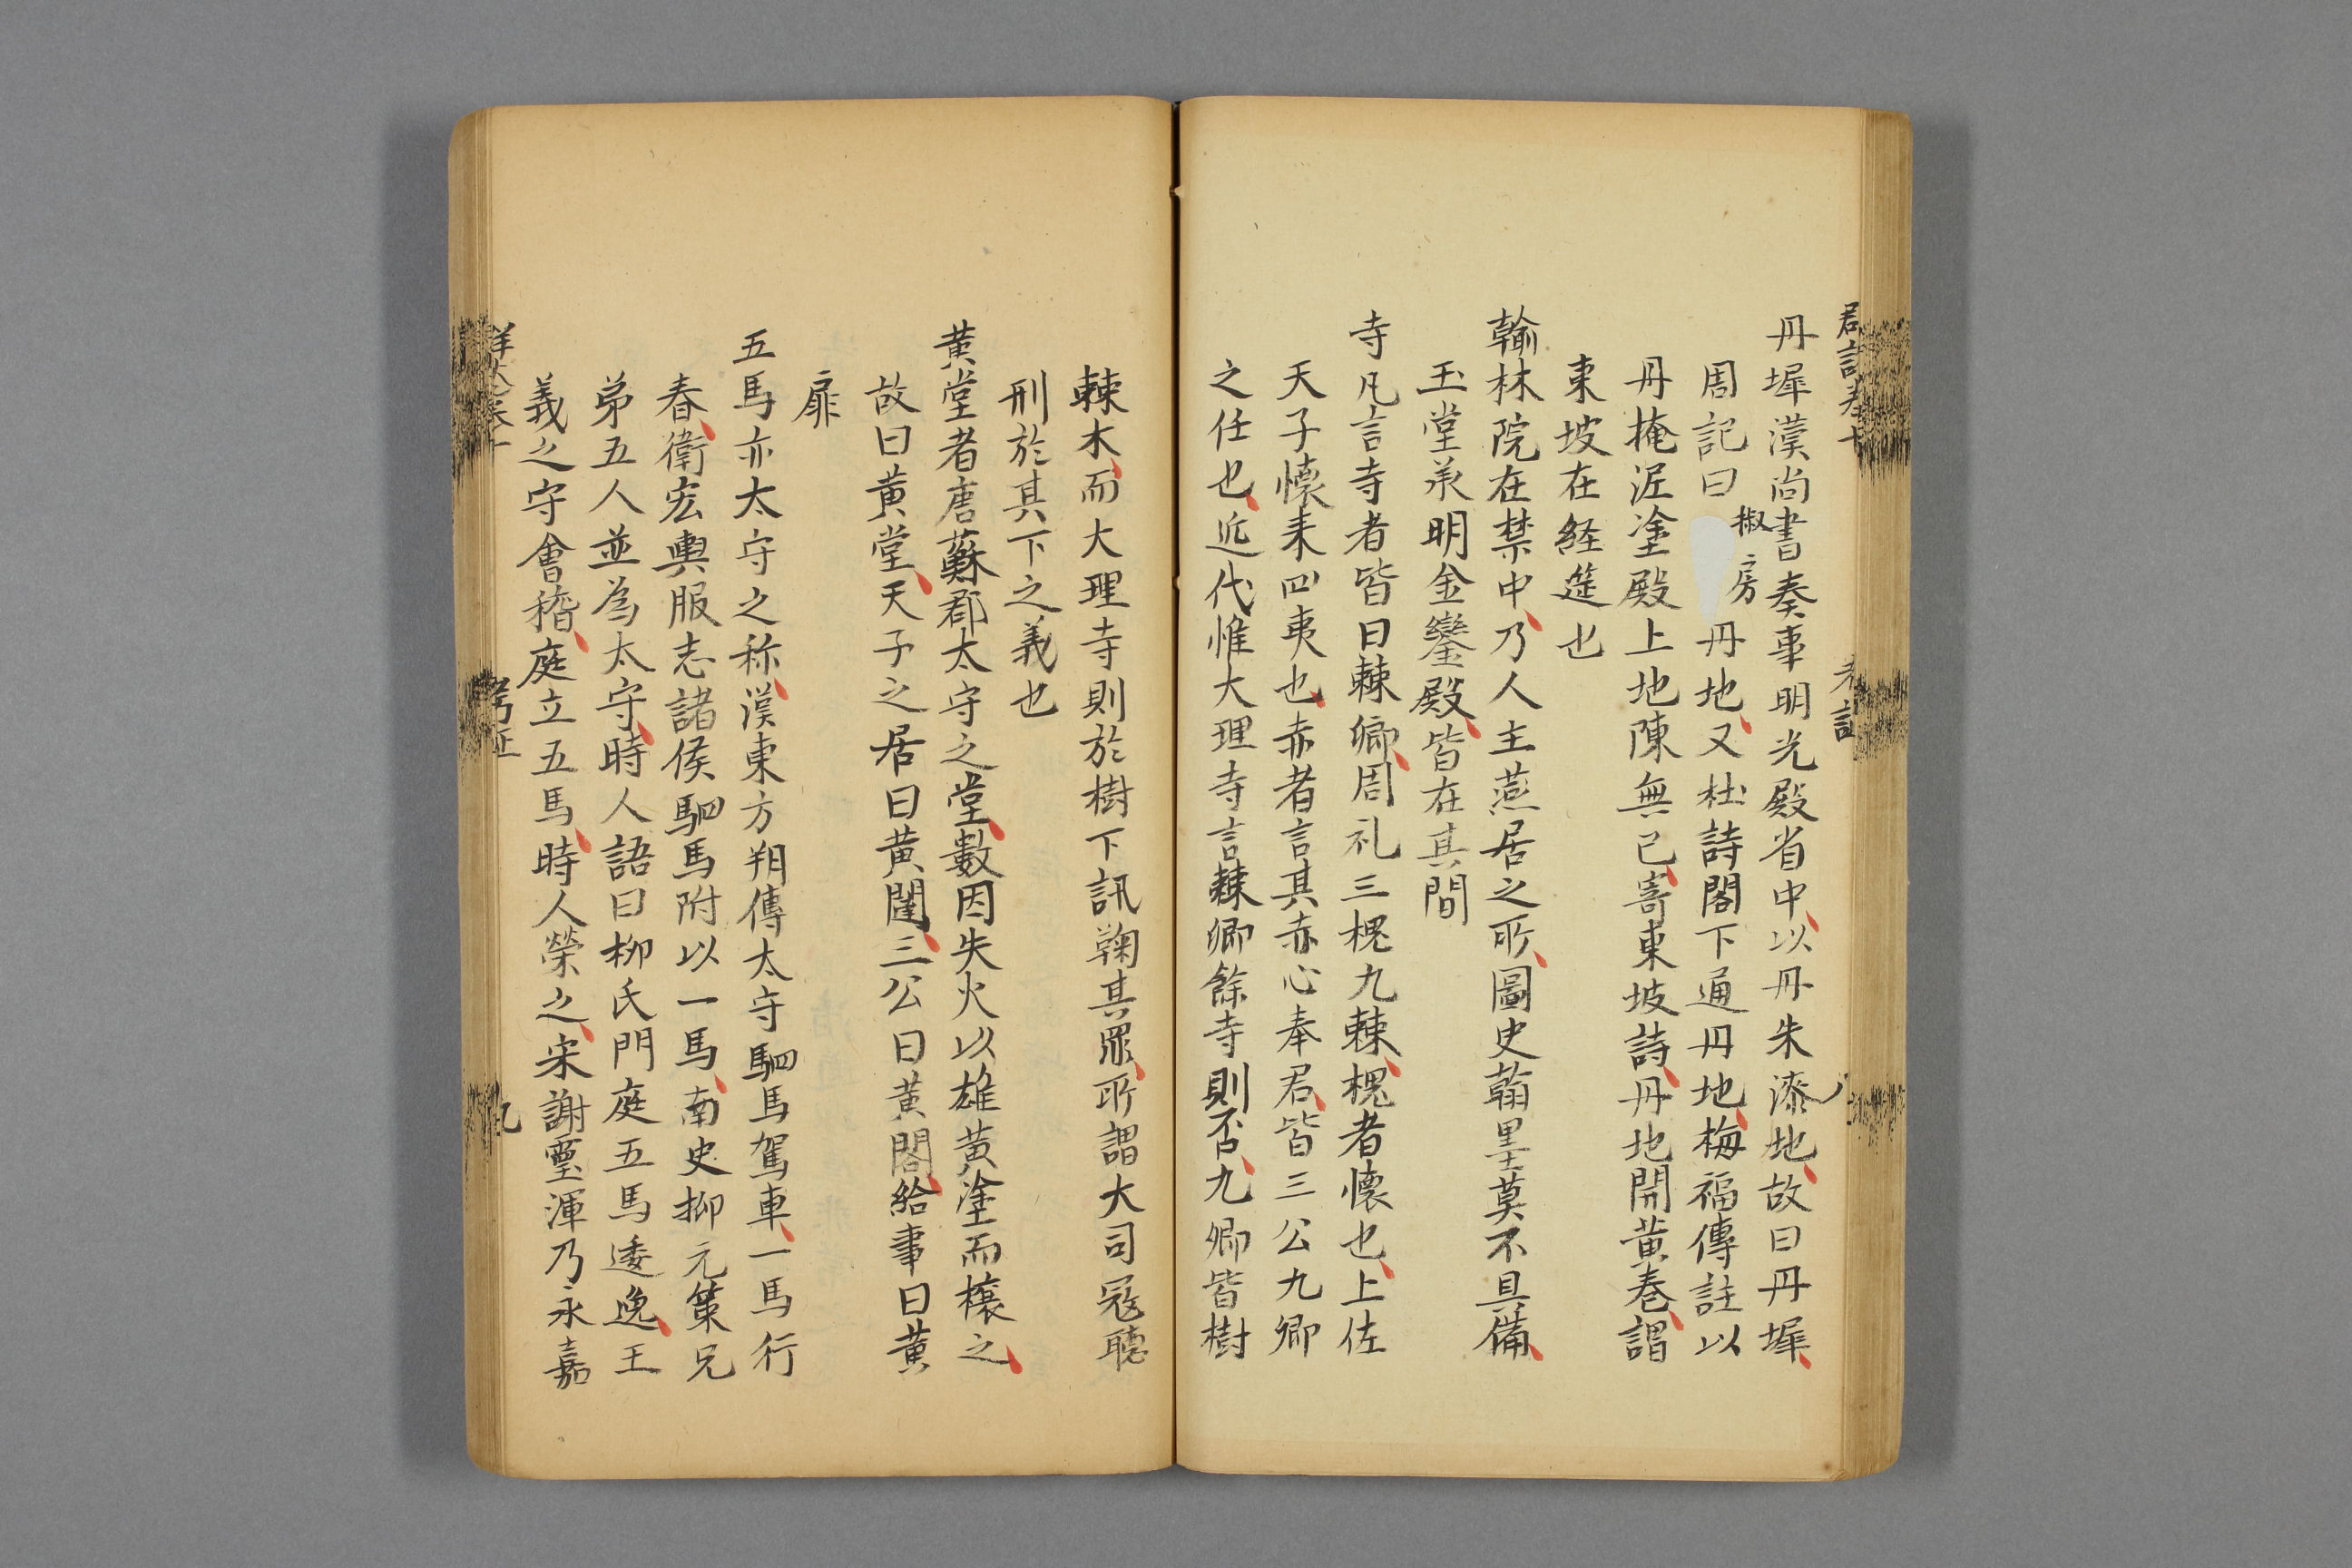 丹墀漢尚書奏事明光殿省中以丹朱漆地故曰丹墀
周記曰椒房丹地又杜詩閣下通丹地梅福傳註以
丹掩泥塗殿上地陳無已寄東坡詩丹地開黃卷謂
東坡在経筵也
翰林院在禁中乃人主燕居之所圖史翰墨莫不具備
玉堂羕明金鑾殿皆在其間
寺凡言寺者皆曰棘卿周礼三槐九棘槐者懷也上佐
天子懷来四夷也赤者言其赤心奉君皆三公九卿
之任也近代惟大理寺言棘卿餘寺則否九卿皆樹
棘木而大理寺則於樹下訊鞠其罪所謂大司冦聽
刑於其下之義也
黃堂者唐蘇郡太守之堂數因失火以雄黃塗而檍之
故曰黃堂天子之居曰黃闥三公曰黃閣給事曰黃
扉
五馬亦太守之称漢東方朔傳太守駟馬駕車一馬行
春衛宏輿服志諸侯駟馬附以一馬南史柳元策兄
弟五人並為太守時人語曰柳氏門庭五馬逶迤王
義之守會稽庭立五馬時人榮之宋謝靈渾乃永嘉